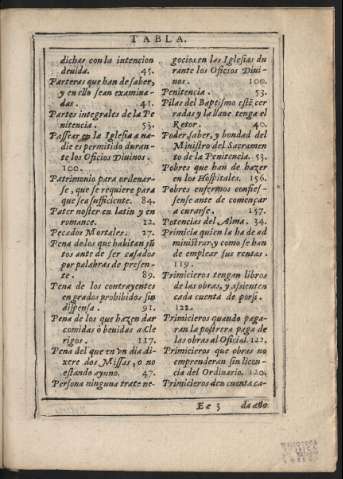 TABLA.
dichas con la intencion
deuida. 45.
Parteras que han de saber,
y en ello sean examina-
das. 41.
Partes integrales de la Pe
nitencia. 53.
Passear en la Iglesia a na-
die es permitido duran-
te los Oficios Diuinos.
100.
Patrimonio para ordenar-
se, que se requiere para
que sea sufficiente. 84.
Pater noster en latin y en
romance. 12.
Pecador Mortales. 27.
Pena de los que habitan jũ
tos ante de ser casados
por palabras de presen-
te. 89.
Pena de los contrayentes
en grados prohibidos sin
dispensa. 91.
Pena de los que hazen dar
comidas ò beuidas a Cle
rigos. 117.
Pena del que en vn dia di-
xere dos Missas, o no
estando ayuno. 47.
Persona ninguna trate ne-
gocios en las Iglesias du
rante los Oficios Diui-
nos. 100.
Penitencia. 53.
Pilas del Baptismo estè cer
radas y la llaue tenga el
Retor. 40.
Poder, saber, y bondad del
Ministro del Sacramen
to de la Penitencia. 53.
Pobres que han de hazer
en los Hospitales. 156.
Pobres enfermos confies-
sense ante de començar
a curarse. 157.
Potencias del Alma. 34.
Primicia quien la ha de ad
ministrar, y como se han
de emplear sus rentas.
119.
Primicieros tengan libros
de las obras, y assienten
cada cuenta de porsi.
122.
Primicieros quando paga-
ran la postrera paga de
las obras al Oficial. 122.
Primicieros que obras no
emprenderan sin licen-
cia del Ordinario. 120.
Primicieros den cuenta ca-
Ee 3 da año